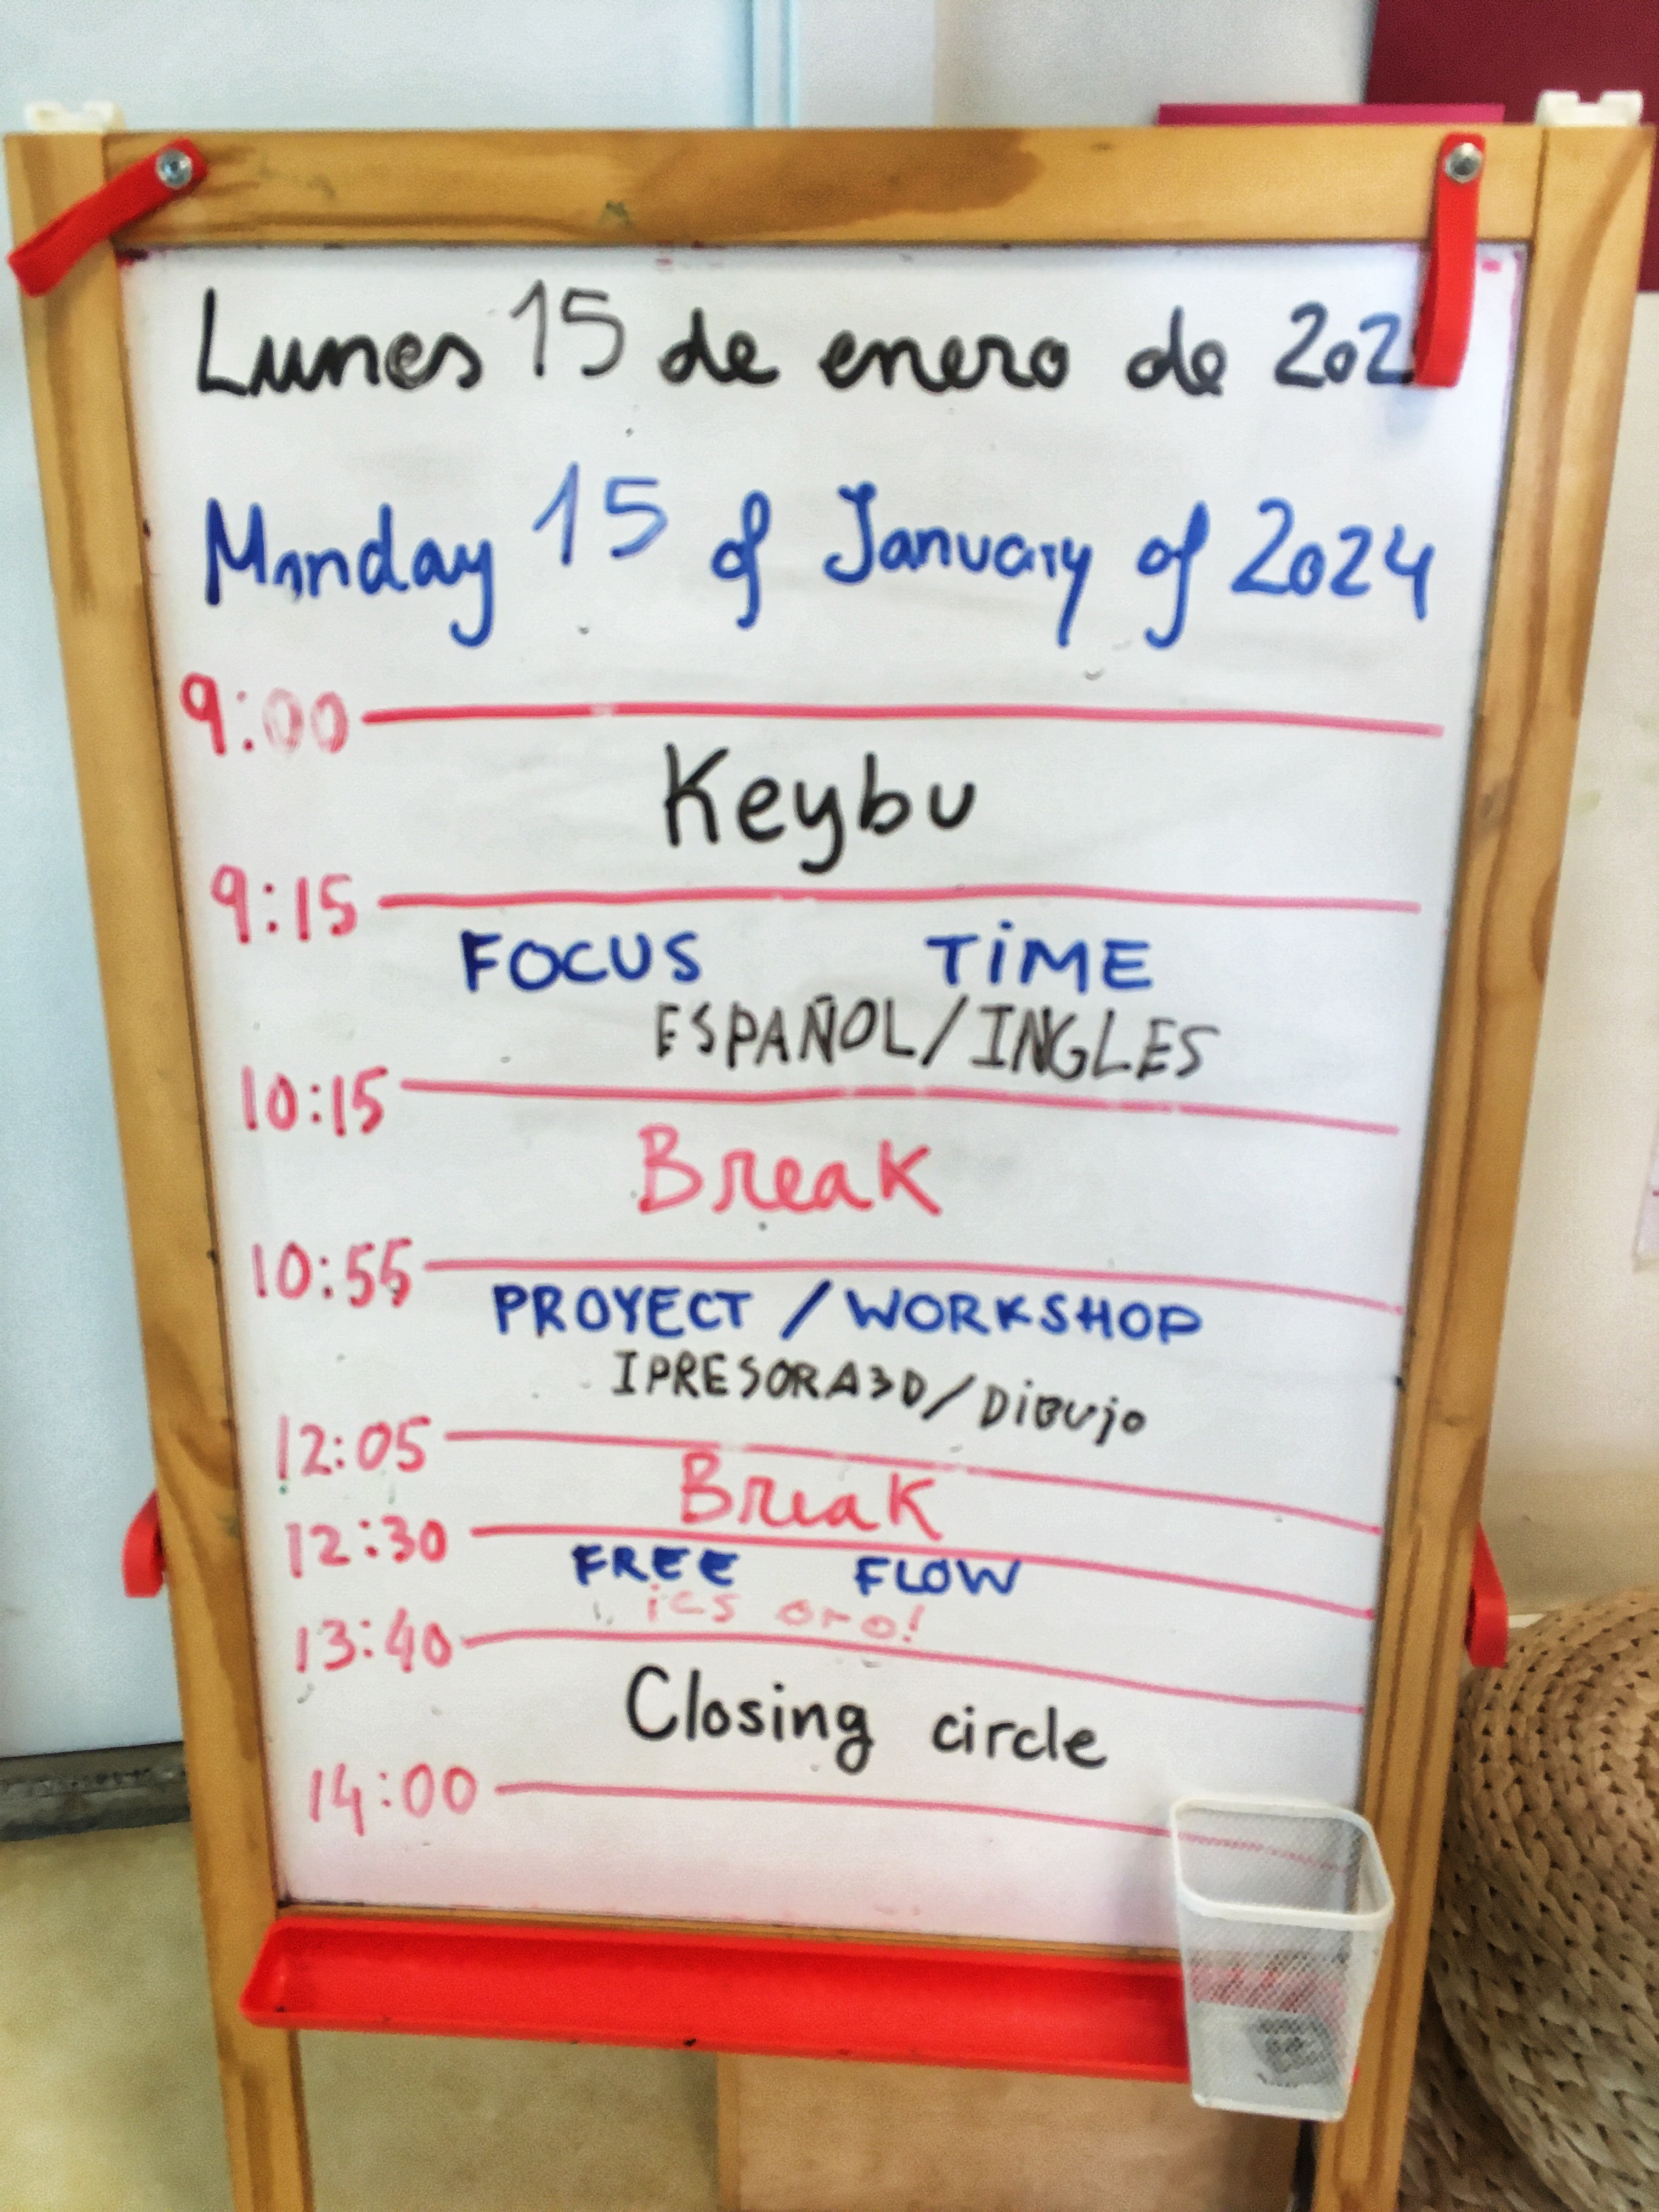 Lunes 15 de enero de 202
Monday 15 of January of 2024
9:00
Keybu
9:15
FOCUS TiME
ESPAÑOL/INGLES
10:15
Break
10:55
PROYECT / WORKSHOP
IPRESORA3D/DiBujo
12:05
Break
12:30
FREE FLOW
13:40
Closing circle
14:00